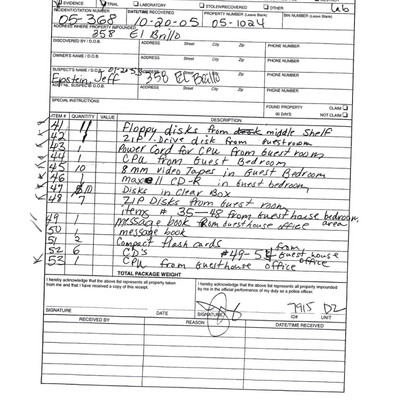 EVIDENCE TRIAL LABORATORY STOLEN/RECOVERED OTHER
INCIDENT/CASE # DATE/TIME RECOVERED PROPERTY NUMBER (Leave Blank) BIN NUMBER (Leave Blank)
05-368 10-20-05 05-1024
ADDRESS WHERE PROPERTY IMPOUNDED
358 El Brillo
DISCOVERED BY / D.O.B. ADDRESS Street City Zip PHONE NUMBER
OWNER'S NAME / D.O.B. ADDRESS Street City Zip PHONE NUMBER
SUSPECT'S NAME / D.O.B. ADDRESS Street City Zip PHONE NUMBER
Epstein, Jeff 358 El Brillo
SUSPECT / D.O.B. ADDRESS Street City Zip PHONE NUMBER
SPECIAL INSTRUCTIONS
FOUND PROPERTY CLAIM
90 DAYS NOT CLAIM
ITEM # QUANTITY VALUE DESCRIPTION
41 11 Floppy disks from middle shelf
42 1 ZIP Drive disk from guestroom
43 1 Power Cord for CPU from guest room
44 1 CPU from Guest Bedroom
45 10 8mm video Tapes in Guest Bedroom
46 1 CD-R in guest bedroom
47 Disks in Clear Box
48 7 ZIP Disks from Guest room
items # 35-48 from Guesthouse bedroom area
49 1 message book from Guesthouse office
50 1 message book
51 2 Compact flash cards
52 6 CD's #49-53 from Guest house office
53 1 CPU from Guesthouse office
TOTAL PACKAGE WEIGHT
I hereby acknowledge that the above list represents all property taken
from me and that I have received a copy of this receipt.
I hereby acknowledge that the above list represents all property impounded
by me in the official performance of my duty as a police officer.
7915 D2
SIGNATURE DATE SIGNATURE ID# UNIT
RECEIVED BY REASON DATE/TIME RECEIVED